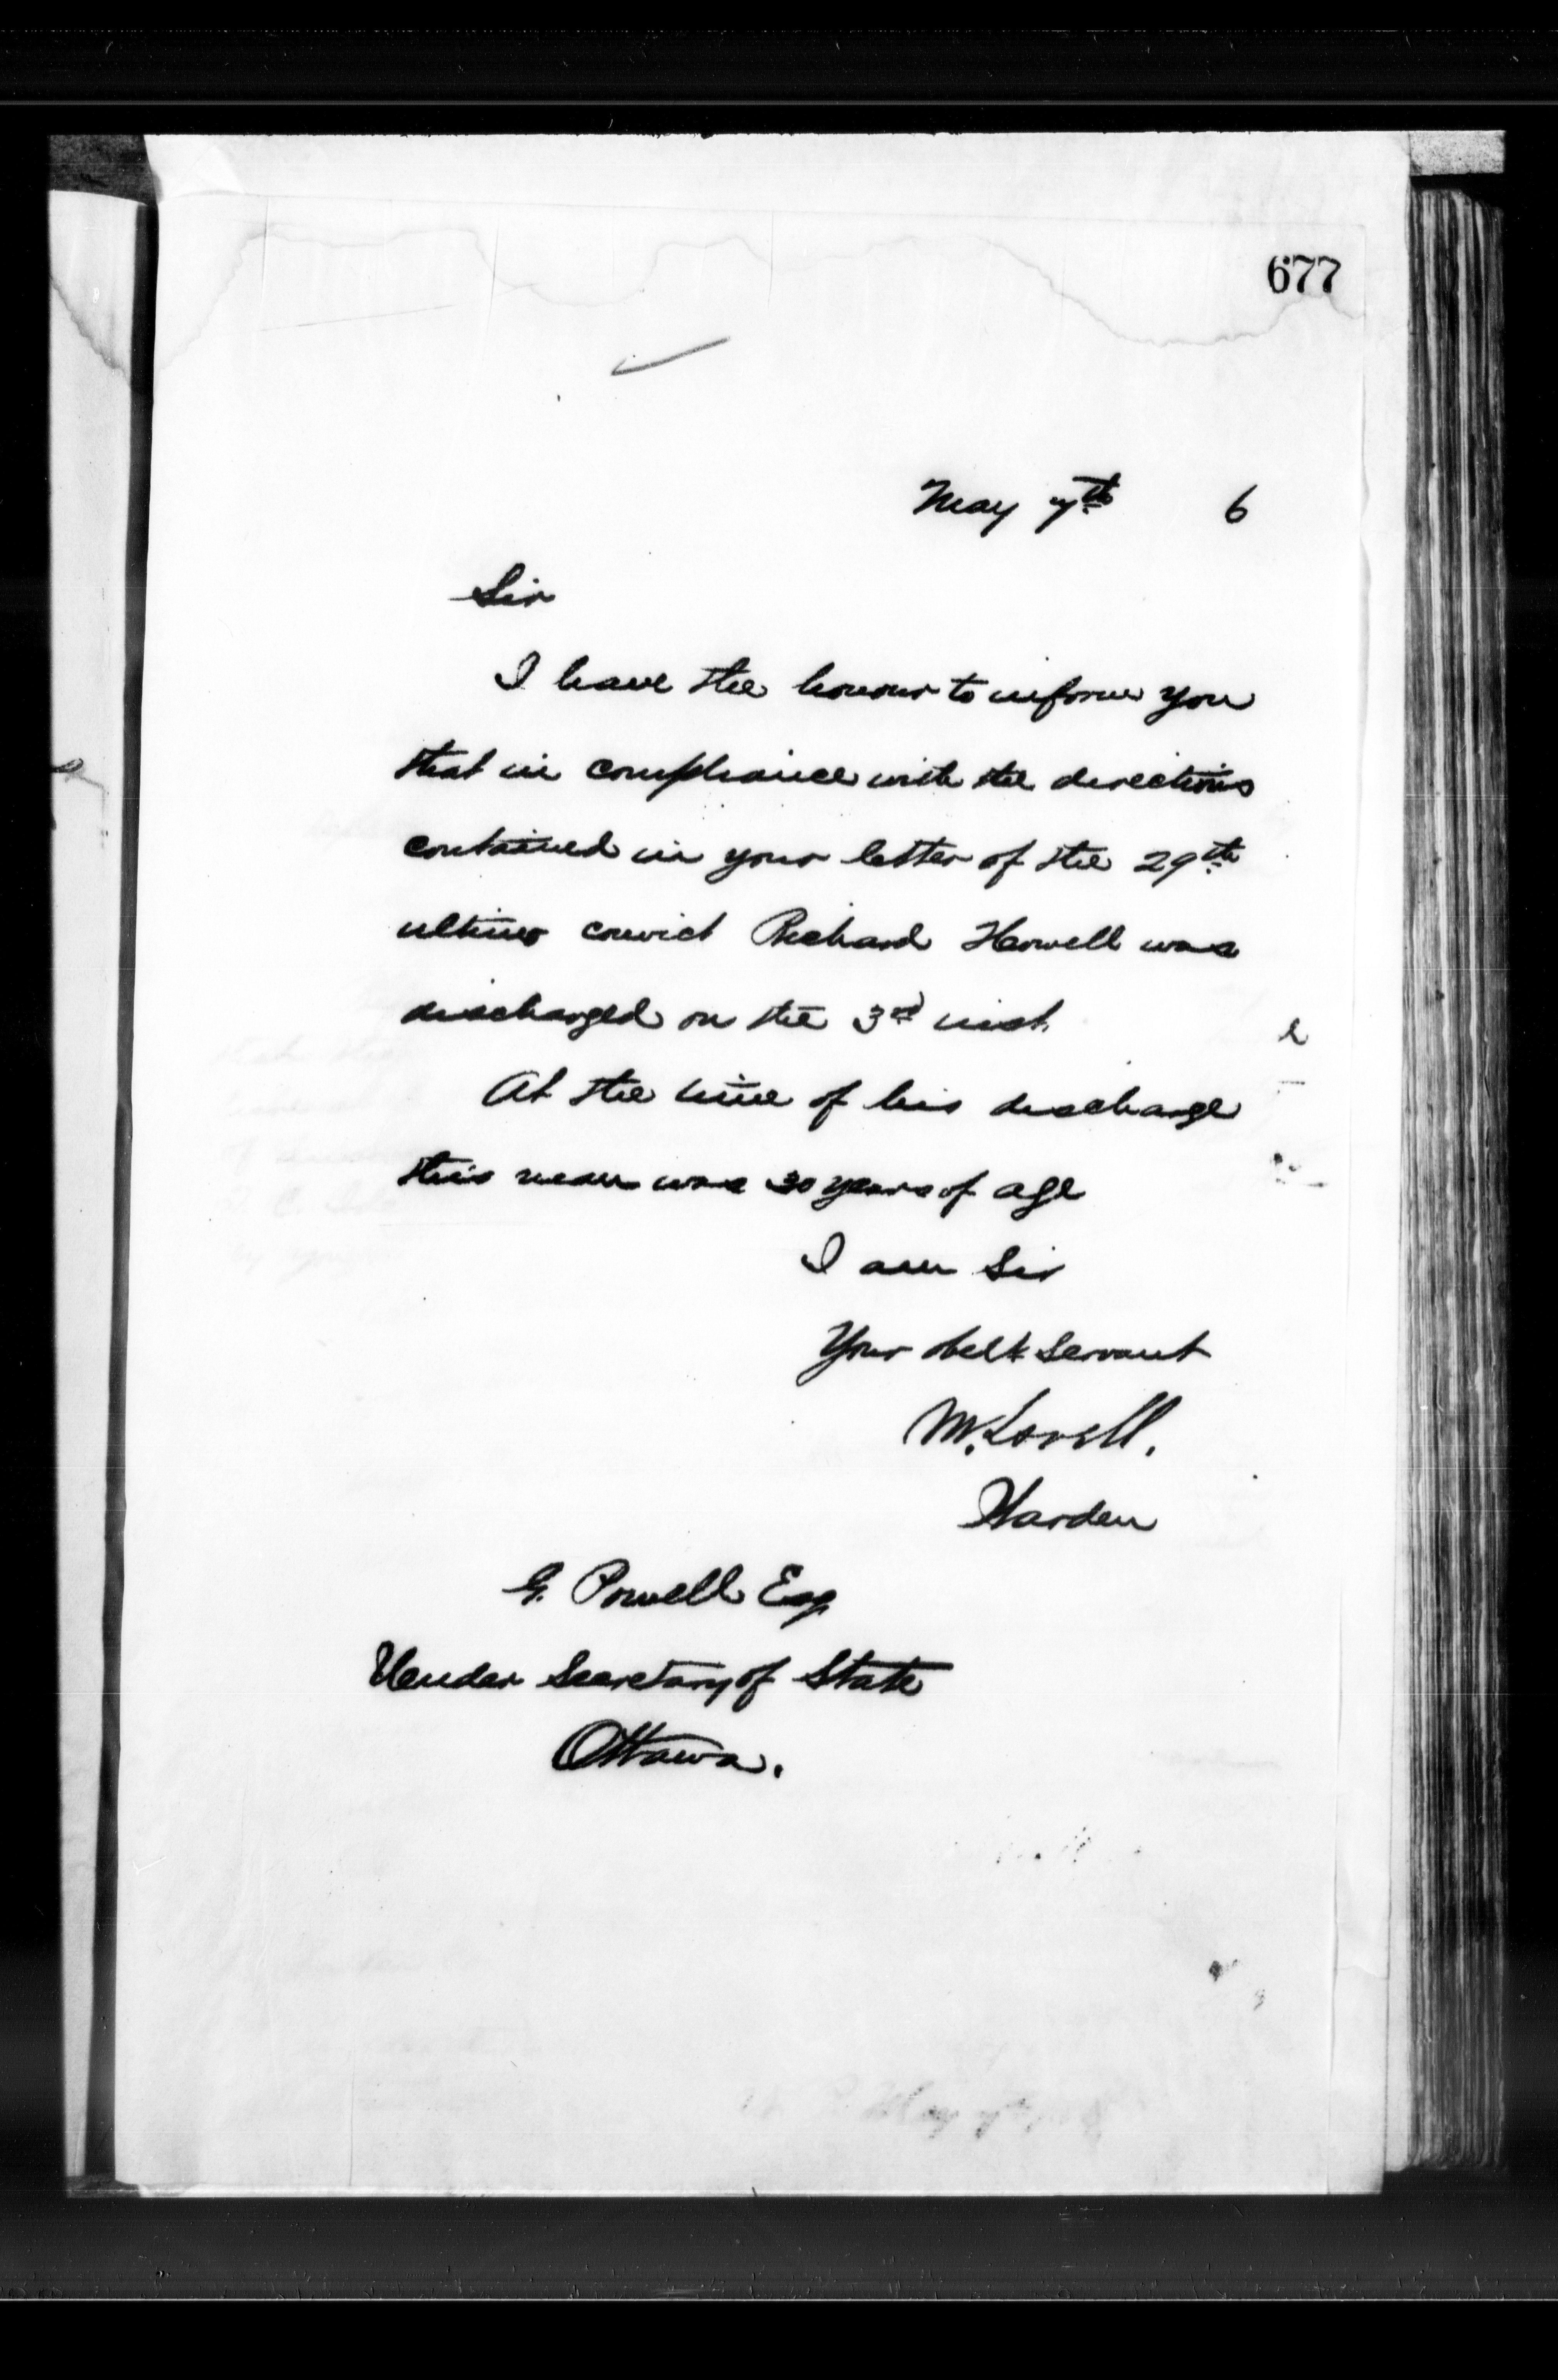 677
May 7th 6
Sir
I have the honour to inform you
that in compliance with the directions
contained in your letter of the 29th
ultimo convict Richard Howell was
discharged on the 3rd inst.
At the time of his discharge
this man was 30 years of age
I am Sir
Your obedt servant
M. Lavell.
Warden
G. Powell Esq
Under Secretary of State
Ottawa.